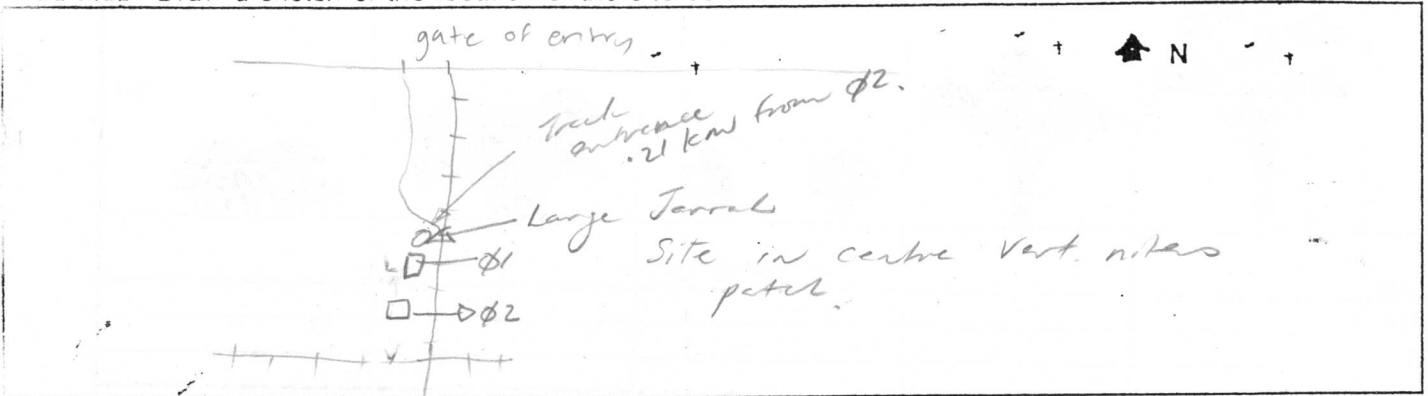 gate of entry
N
Track
entrance
.21 km from Ø2.
Large Jarrah
Site in centre Vert. nitens
patch.
Ø1
Ø2